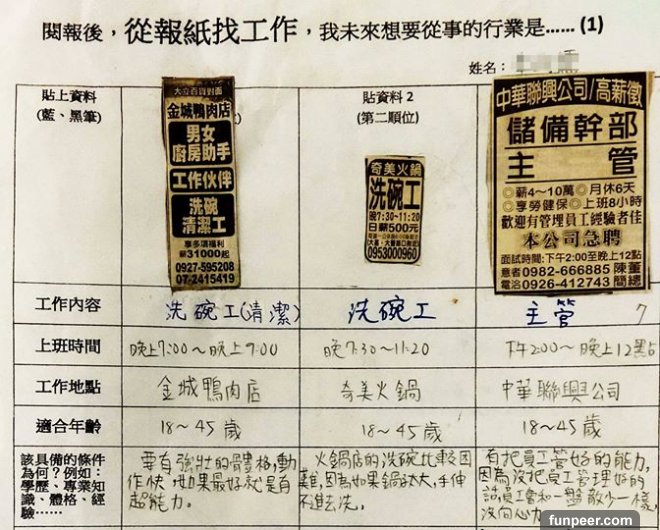 閱報後，從報紙找工作，我未來想要從事的行業是......(1)
姓名：
貼上資料
(藍、黑筆)
大立百貨對面
金城鴨肉店
男女
廚房助手
工作伙伴
洗碗
清潔工
享多項福利
薪31000起
0927-595208
07-2415419
貼資料 2
(第二順位)
奇美火鍋
洗碗工
晚7:30~11:20
日薪500元
0953000960
中華聯興公司/高薪徵
儲備幹部
主管
◎薪4～10萬◎月休6天
◎享勞健保◎上班8小時
歡迎有管理員工經驗者佳
本公司急聘
面試時間:下午2:00至晚上12點
意者0982-666885 陳董
電洽0926-412743 簡總
工作內容
洗碗工(清潔)
洗碗工
主管
7
上班時間
晚上7:00～晚上9:00
晚7:30～11:20
下午2:00～晚上12點
工作地點
金城鴨肉店
奇美火鍋
中華聯興公司
適合年齡
18～45歲
18～45歲
18～45歲
該具備的條件
為何？例如：
學歷、專業知
識、體格、經
驗......
要有強壯的體格,動
作快,如果最好就是有
超能力。
火鍋店的洗碗比較困
難,因為如果鍋太大,手伸
不進去洗。
有把員工管好的能力,
因為沒把員工管理好的
話,員工會和一盤散沙一樣,
沒向心力
funpeer.com